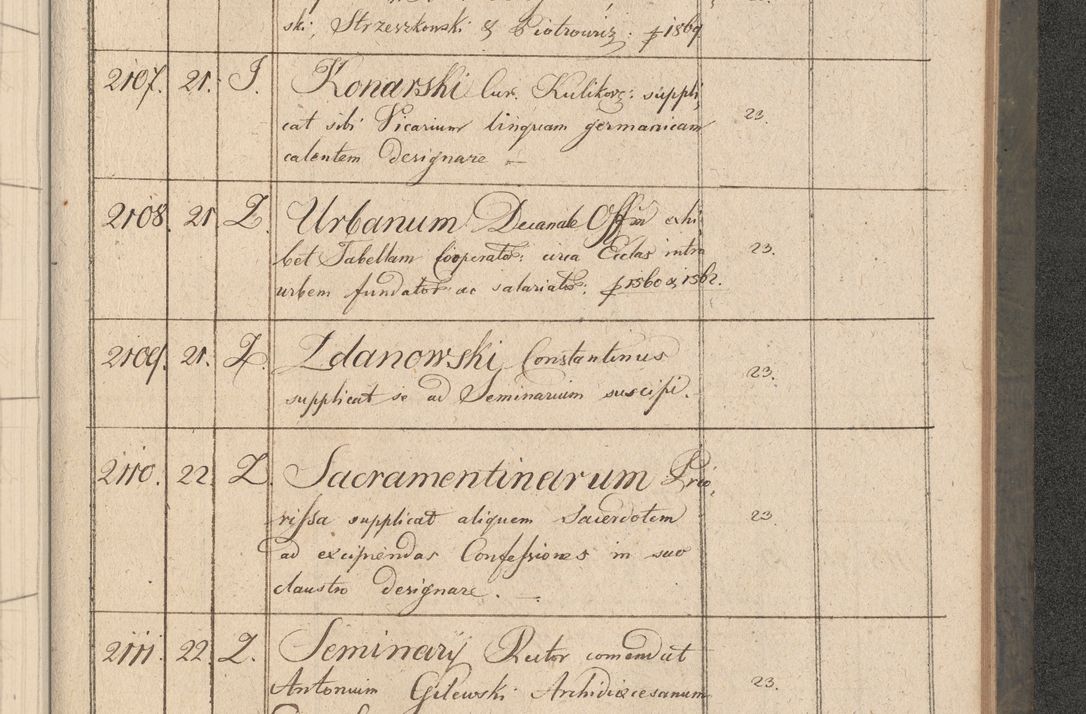 ski, Strzeszkowski & Piotrowicz. f 1869
2107. 21. J. Konarski Cur. Kulikov: suppli,
cat sibi Vicarium linguam germanicam 23.
calentem designare —
2108. 21. Z. Urbanum Decanale Offm exhi-
bet Tabellam Cooperator: circa Eccles intra 23.
urbem fundator: ac salariator. f 1560 & 1562.
2109. 21. Z. Zdanowski Constantinus
supplicat se ad Seminarium suscipi. 23.
2110. 22. Z. Sacramentinarum Prio,
rissa supplicat aliquem Sacerdotem 23
ad excipiendas Confessiones in suo
claustro designare. —
2111. 22. Z. Seminarij Rector comendat
Antonium Gilewski Archidiœcesanum 23.